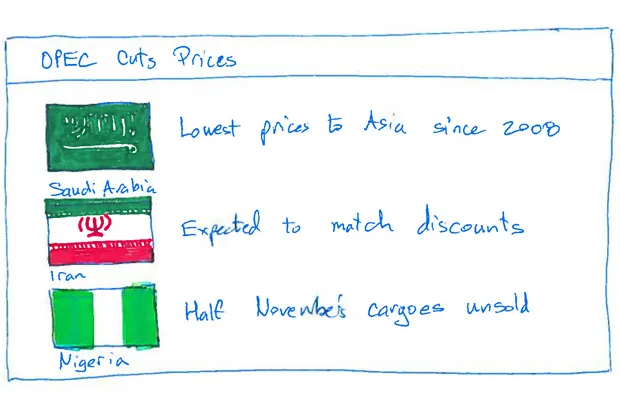 OPEC Cuts Prices
Lowest prices to Asia since 2008
Saudi Arabia
Expected to match discounts
Iran
Half November's cargoes unsold
Nigeria